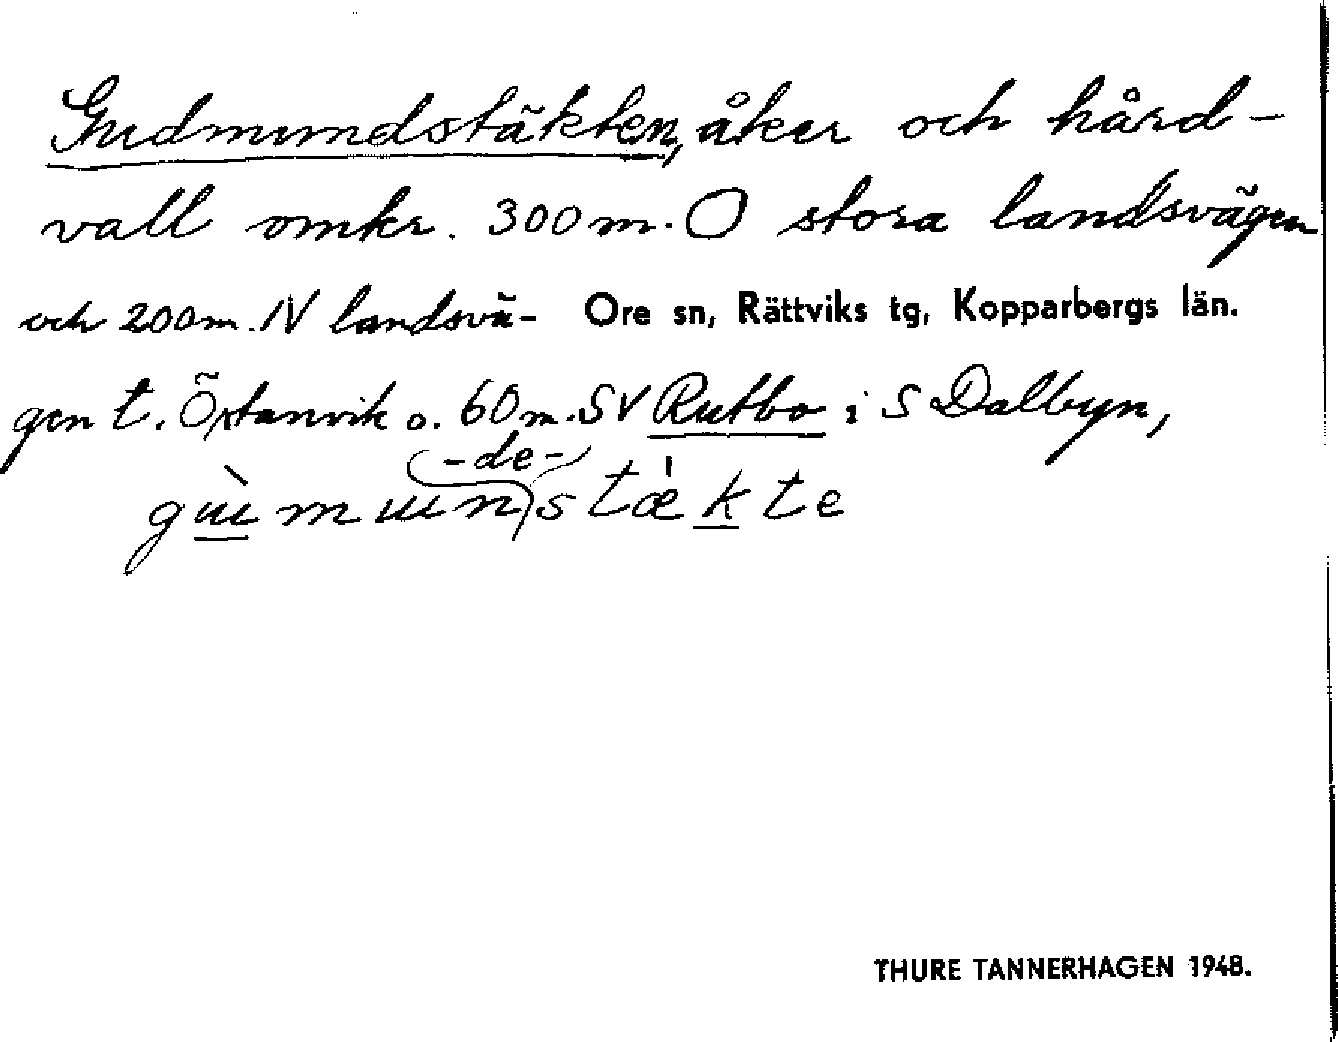 Gudmundstäkten, åker och hård-
vall omkr. 300 m. O stora landsvägen
och 200 m. N landsvä- Ore sn, Rättviks tg, Kopparbergs län.
gen t. Östanvik o. 60 m. SV Rutbo i S Dalbyn,
-de-
gɯ̀mɯnstǽkte
THURE TANNERHAGEN 1948.